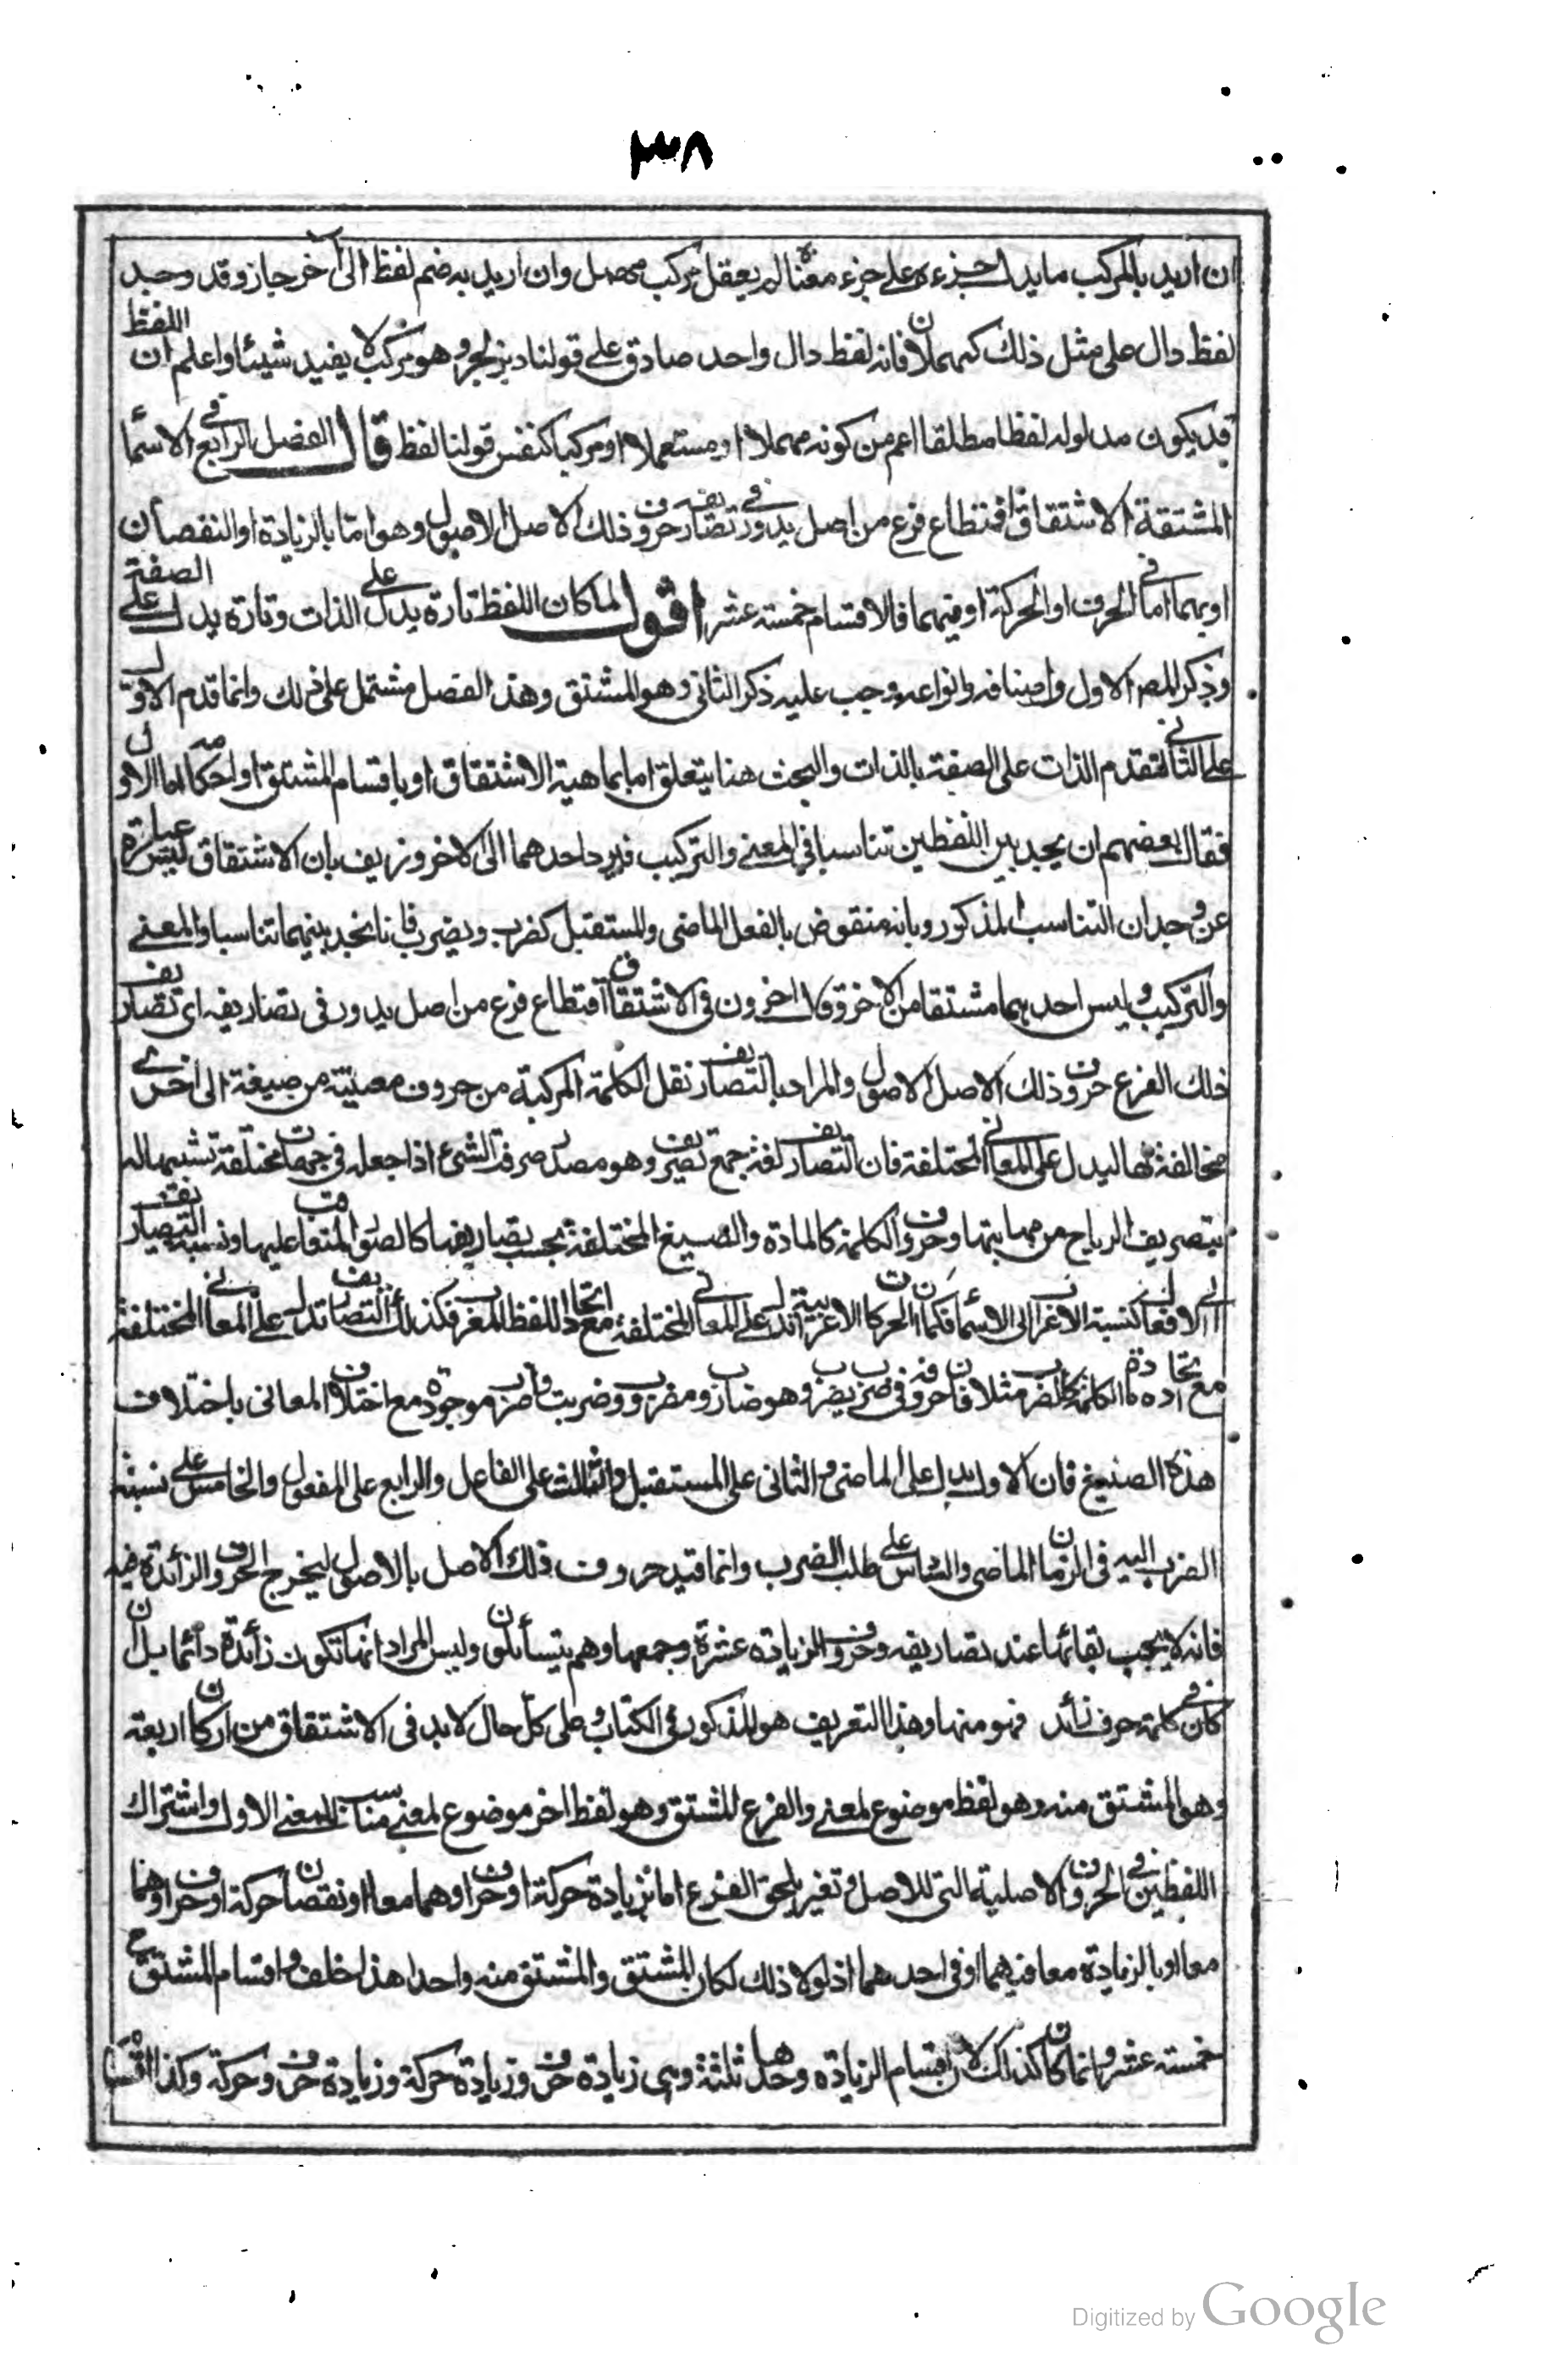 ٣٨
ان اريد بالمركب ما يدل جزءه على جزء معناه لم يعقل مركب مهمل وان اريد به ضم لفظ الى آخر جاز وقد وجد
لفظ دال على مثل ذلك كمهملان فانه لفظ دال واحد صادق على قولنا ديز لجر وهو مركب لا يفيد شيئا واعلم ان اللفظ
قد يكون مدلوله لفظا مطلقا اعم من كونه مهملا او مستعملا او مركبا كنفس قولنا لفظ قال الفصل الرابع في الاسما
المشتقة الاشتقاق اقتطاع فرع من اصل يدور في تصاريفه حروف ذلك الاصل الاصول وهو اما بالزيادة او النقصان
او بهما اما في الحرف او الحركة او فيهما فالاقسام خمسة عشر اقول لما كان اللفظ تارة يدل على الذات وتارة يدل على الصفة
وذكر المص الاول واصنافه وانواعه وجب عليه ذكر الثاني وهو المشتق وهذا الفصل مشتمل على ذلك وانما قدم الاول
على الثاني لتقدم الذات على الصفة بالذات والبحث هنا يتعلق اما بماهية الاشتقاق او باقسام المشتق او احكامه اما الاول
فقال بعضهم ان يجد بين اللفظين تناسبا في المعنى والتركيب فيرد احدهما الى الاخر وزيف بان الاشتقاق ليس عبارة
عن وجدان التناسب المذكور وبانه منقوض بالفعل الماضي والمستقبل كضرب ويضرب فانا نجد بينهما تناسبا في المعنى
والتركيب وليس احدهما مشتقا من الاخر وقال اخرون في الاشتقاق اقتطاع فرع من اصل يدور في تصاريفه اي تصاريف
ذلك الفرع حروف ذلك الاصل الاصول والمراد بالتصاريف نقل الكلمة المركبة من حروف معينة من صيغة الى اخرى
مخالفة لها ليدل على المعاني المختلفة فان التصاريف لغة جمع تصريف وهو مصدر صرفت الشئ اذا جعله في جهات مختلفة تشبيها له
بتصريف الرياح من مهابتها وحروف الكلمة كالمادة والصيغ المختلفة بحسب تصاريفها كالصور المتعاقبة عليها ونسبة التصاريف
الى الافعال كنسبة الاعراب الى الاسماء فكما ان الحركات الاعرابية تدل على المعاني المختلفة مع اتحاد اللفظ المعرب فكذلك التصاريف تدل على المعاني المختلفة
مع اتحاد مادة الكلمة كالضرب مثلا فان حروفه في ضرب يضرب وهو ضارب ومضروب وضربت واضرب موجودة مع اختلاف المعاني باختلاف
هذه الصيغ فان الاول يدل على الماضي والثاني على المستقبل والثالث على الفاعل والرابع على المفعول والخامس على نسبة
الضرب اليه في الزمان الماضي والسادس على طلب الضرب وانما قيد حروف ذلك الاصل بالاصول ليخرج الحروف الزائدة فيه
فانه لا يجب بقائها عند تصاريفه وحروف الزيادة عشرة وجمعها وهم يتسألون وليس المراد انها تكون زائدة دائما بل ان
كان في كلمة حرف زائد فهو منها وهذا التعريف هو المذكور في الكتاب وعلى كل حال لا بد في الاشتقاق من اركان اربعة
وهو المشتق منه وهو لفظ موضوع لمعنى والفرع المشتق وهو لفظ اخر موضوع لمعنى مناسب للمعنى الاول واشتراك
اللفظين في الحروف الاصلية التي للاصل وتغير يلحق الفرع اما بزيادة حركة او حرف او هما معا او نقصان حركة او حرف او هما
معا او بالزيادة معا فيهما او في احدهما اذ لولا ذلك لكان المشتق والمشتق منه واحدا هذا خلف واقسام المشتق
خمسة عشر وانما كان كذلك لان اقسام الزيادة وحدها ثلثة وهي زيادة حرف وزيادة حركة وزيادة حرف وحركة وكذا اقسام
Digitized by Google